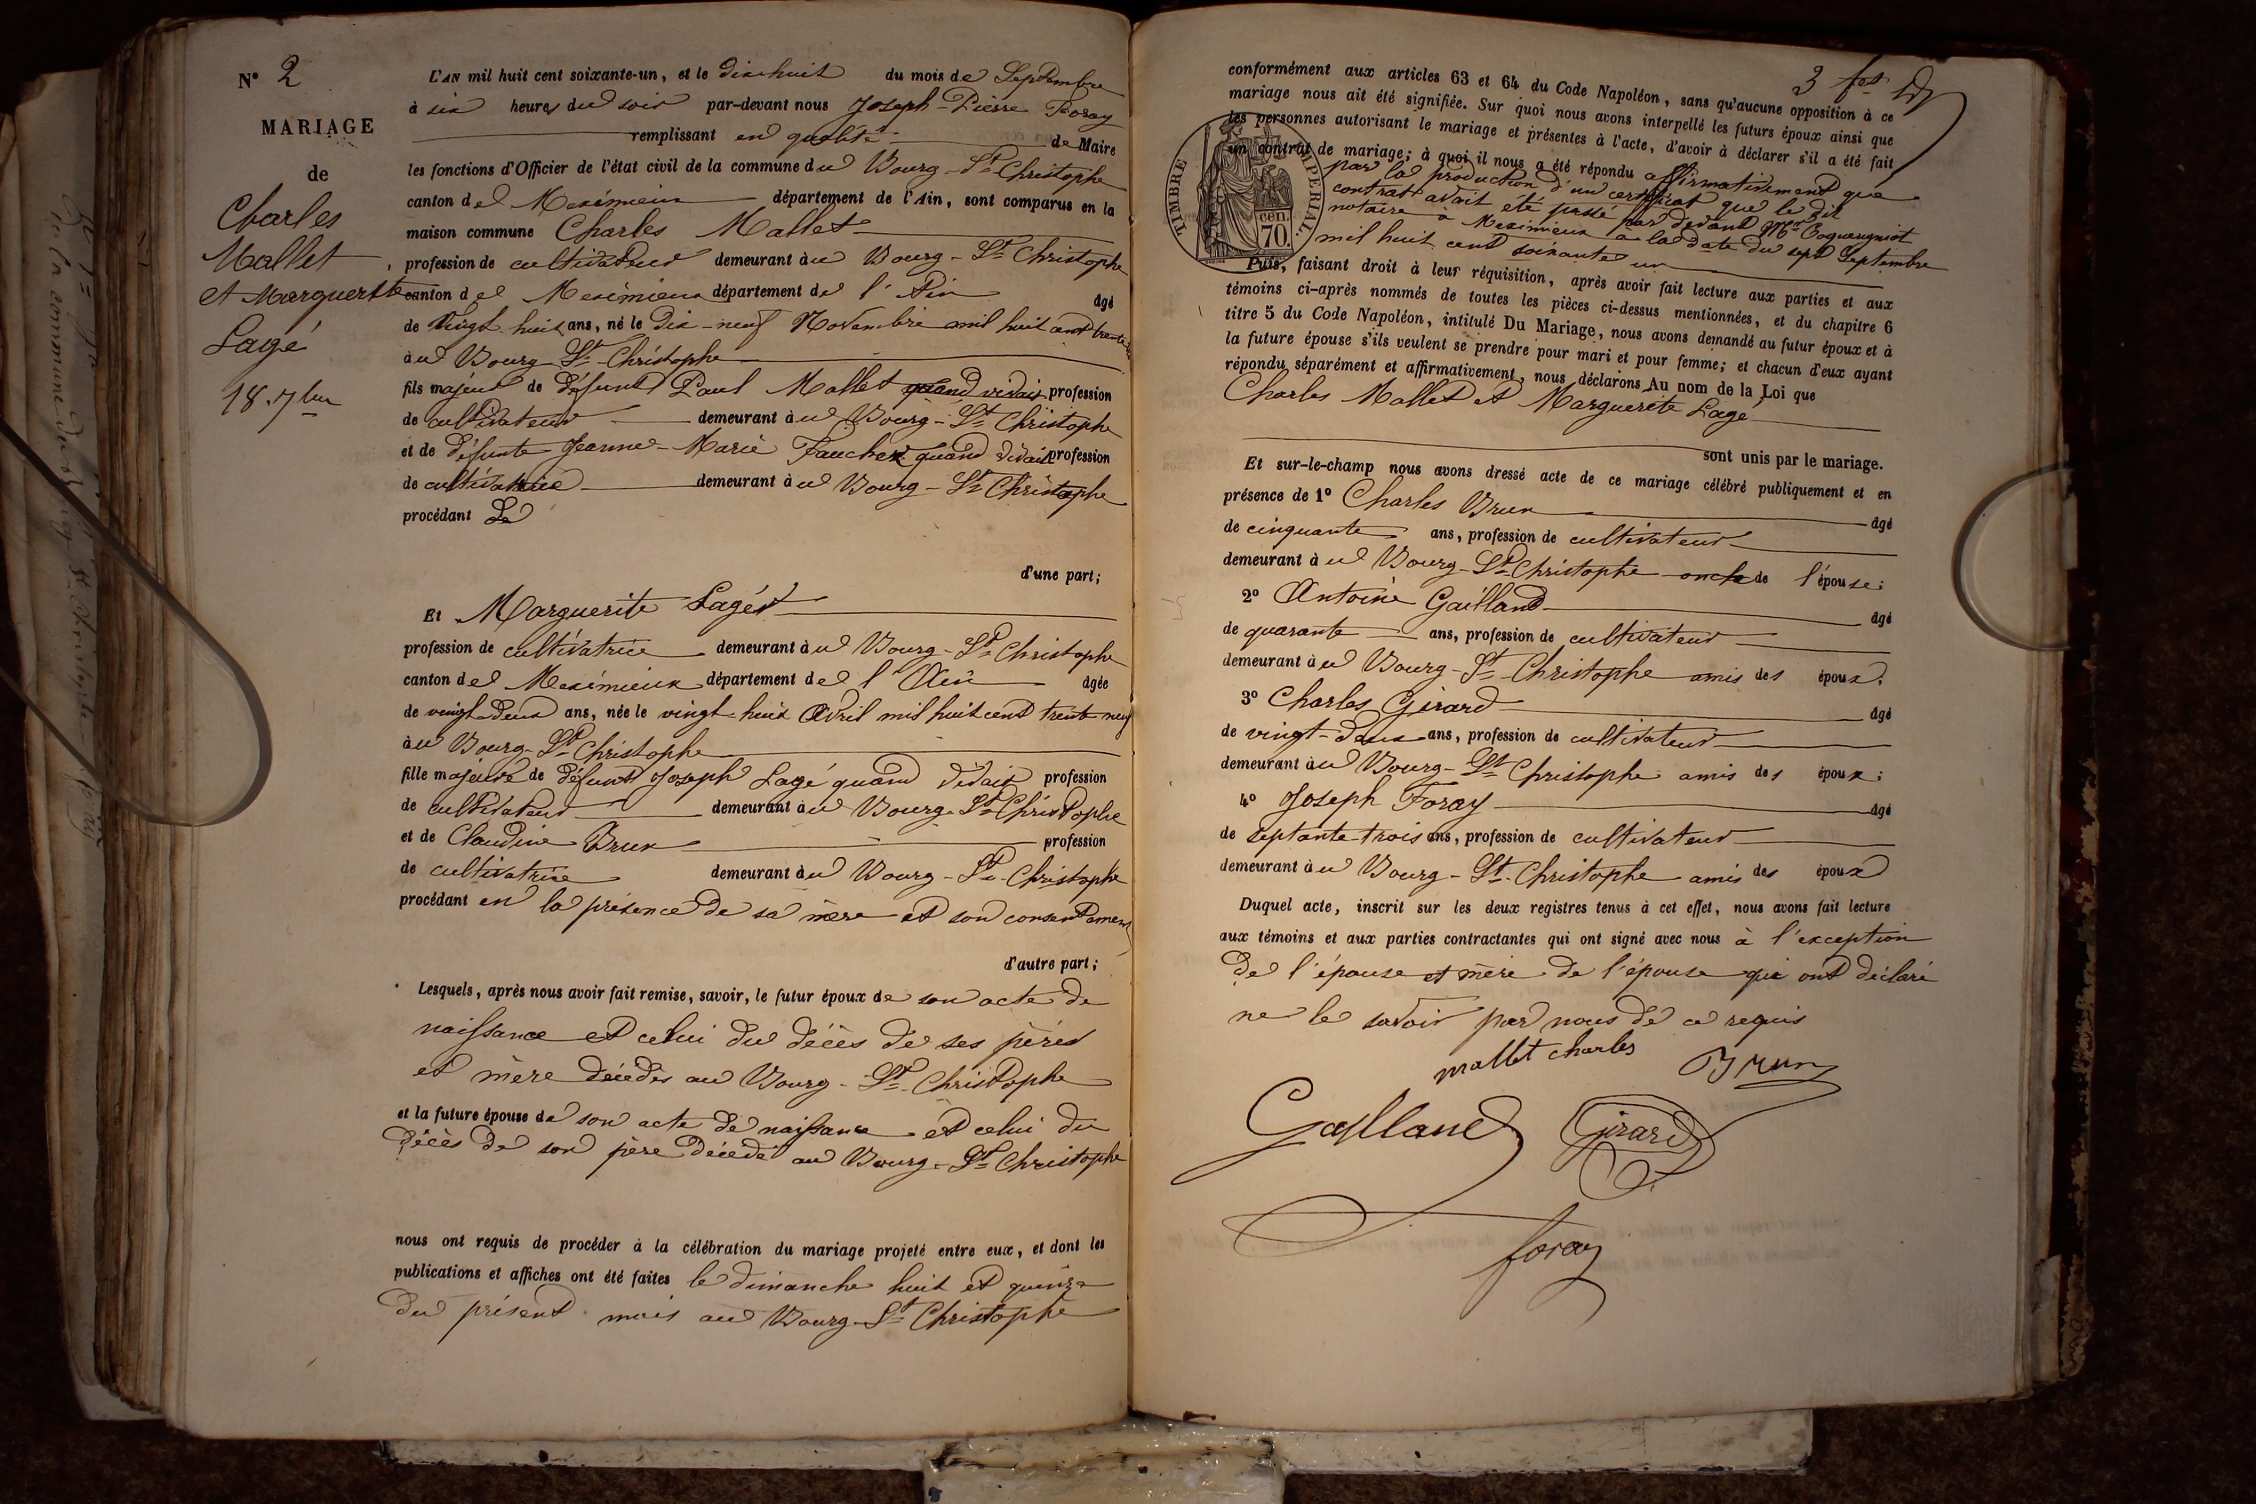 N° 2
MARIAGE
de
Charles
Mallet
et Marguerite
Lagé
18. 7bre
L'AN mil huit cent soixante-un, et le dix-huit du mois de Septembre
à six heures du soir par-devant nous Joseph-Pierre Foray
remplissant en qualité de Maire
les fonctions d'Officier de l'état civil de la commune du Bourg-St-Christophe
canton de Meximieux département de l'Ain, sont comparus en la
maison commune Charles Mallet
profession de cultivateur demeurant au Bourg-St-Christophe
canton de Meximieux département de l'Ain âgé
de vingt-huit ans, né le Dix-neuf Novembre mil huit cent trente
au Bourg-St-Christophe
fils majeur de défunt Paul Mallet quand vivait profession
de cultivateur demeurant au Bourg-St-Christophe
et de défunte Jeanne-Marie Faucher quand vivait profession
de cultivatrice demeurant au Bourg-St-Christophe
procédant
d'une part;
Et Marguerite Lagér
profession de cultivatrice demeurant au Bourg-St-Christophe
canton de Meximieux département de l'Ain âgée
de vingt-deux ans, née le vingt-huit Avril mil huit cent trente neuf
au Bourg-St-Christophe
fille majeure de défunt Joseph Lagé quand vivait profession
de cultivateur demeurant au Bourg-St-Christophe
et de Claudine Brun profession
de cultivatrice demeurant au Bourg-St-Christophe
procédant en la présence de sa mère et son consentement
d'autre part;
Lesquels, après nous avoir fait remise, savoir, le futur époux de son acte de
naissance et celui du décès de ses pères
et mère décédés au Bourg-St-Christophe
et la future épouse de son acte de naissance et celui du
décès de son père décédé au Bourg-St-Christophe
nous ont requis de procéder à la célébration du mariage projeté entre eux, et dont les
publications et affiches ont été faites le dimanche huit et quinze
du présent mois au Bourg-St-Christophe
3 fos
conformément aux articles 63 et 64 du Code Napoléon, sans qu'aucune opposition à ce
mariage nous ait été signifiée. Sur quoi nous avons interpellé les futurs époux ainsi que
les personnes autorisant le mariage et présentes à l'acte, d'avoir à déclarer s'il a été fait
un contrat de mariage; à quoi il nous a été répondu affirmativement que
par la production d'un certificat que le dit
contrat avait été passé par devant Me Coqueugniot
notaire à Meximieux à la date du sept Septembre
mil huit cent soixante un
TIMBRE IMPERIAL.
70. cen.
Puis, faisant droit à leur réquisition, après avoir fait lecture aux parties et aux
témoins ci-après nommés de toutes les pièces ci-dessus mentionnées, et du chapitre 6
titre 5 du Code Napoléon, intitulé Du Mariage, nous avons demandé au futur époux et à
la future épouse s'ils veulent se prendre pour mari et pour femme; et chacun d'eux ayant
répondu séparément et affirmativement, nous déclarons Au nom de la Loi que
Charles Mallet et Marguerite Lagé
sont unis par le mariage.
Et sur-le-champ nous avons dressé acte de ce mariage célébré publiquement et en
présence de 1° Charles Brun âgé
de cinquante ans, profession de cultivateur
demeurant au Bourg-St-Christophe oncle de l'épouse;
2° Antoine Gailland âgé
de quarante ans, profession de cultivateur
demeurant au Bourg-St-Christophe amis des époux;
3° Charles Girard âgé
de vingt-deux ans, profession de cultivateur
demeurant au Bourg-St-Christophe amis des époux;
4° Joseph Foray âgé
de septante-trois ans, profession de cultivateur
demeurant au Bourg-St-Christophe amis des époux
Duquel acte, inscrit sur les deux registres tenus à cet effet, nous avons fait lecture
aux témoins et aux parties contractantes qui ont signé avec nous à l'exception
de l'épouse et mère de l'épouse qui ont déclaré
ne le savoir par nous de ce requis
mallet charles Brun
Gailland Girard
foray